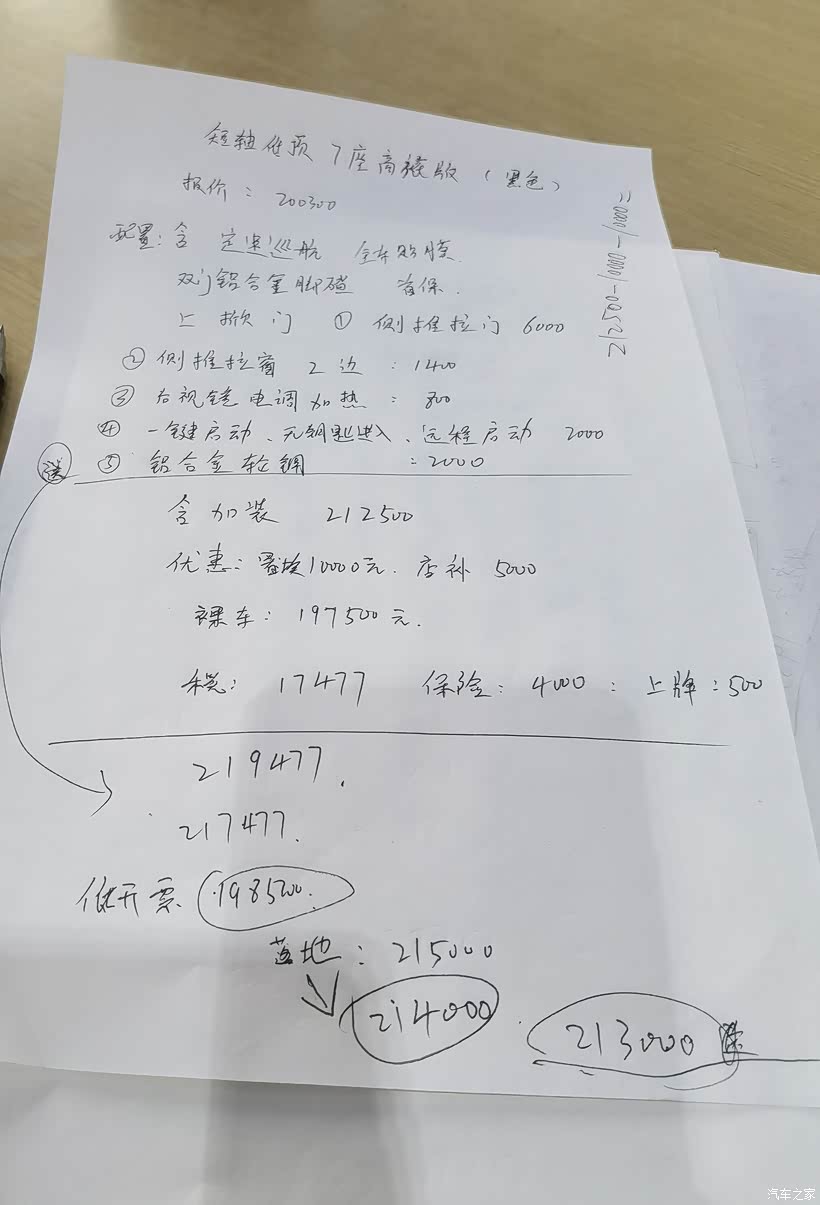 短轴低顶 7座高槛版 (黑色)
报价: 200300
212500-10000-10000=
配置: 含 定速巡航 全车贴膜
双门铝合金脚踏 首保.
上掀门 ① 侧推拉门 6000
② 侧推拉窗 2边 : 1400
③ 后视镜电调加热 : 800
④ 一键启动、无钥匙进入、远程启动 2000
送 ⑤ 铝合金轮辋 :2000
含加装 212500
优惠: 置换10000元. 店补 5000
裸车: 197500元.
税: 17477 保险: 4000 : 上牌:500
219477.
217477.
低开票 198500.
落地: 215000
214000
213000
汽车之家